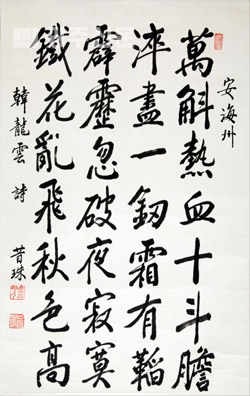 安海州
萬斛熱血十斗膽
淬盡一釰霜有鞱
霹靂忽破夜寂寞
鐵花亂飛秋色高
韓龍雲 詩
昔珠